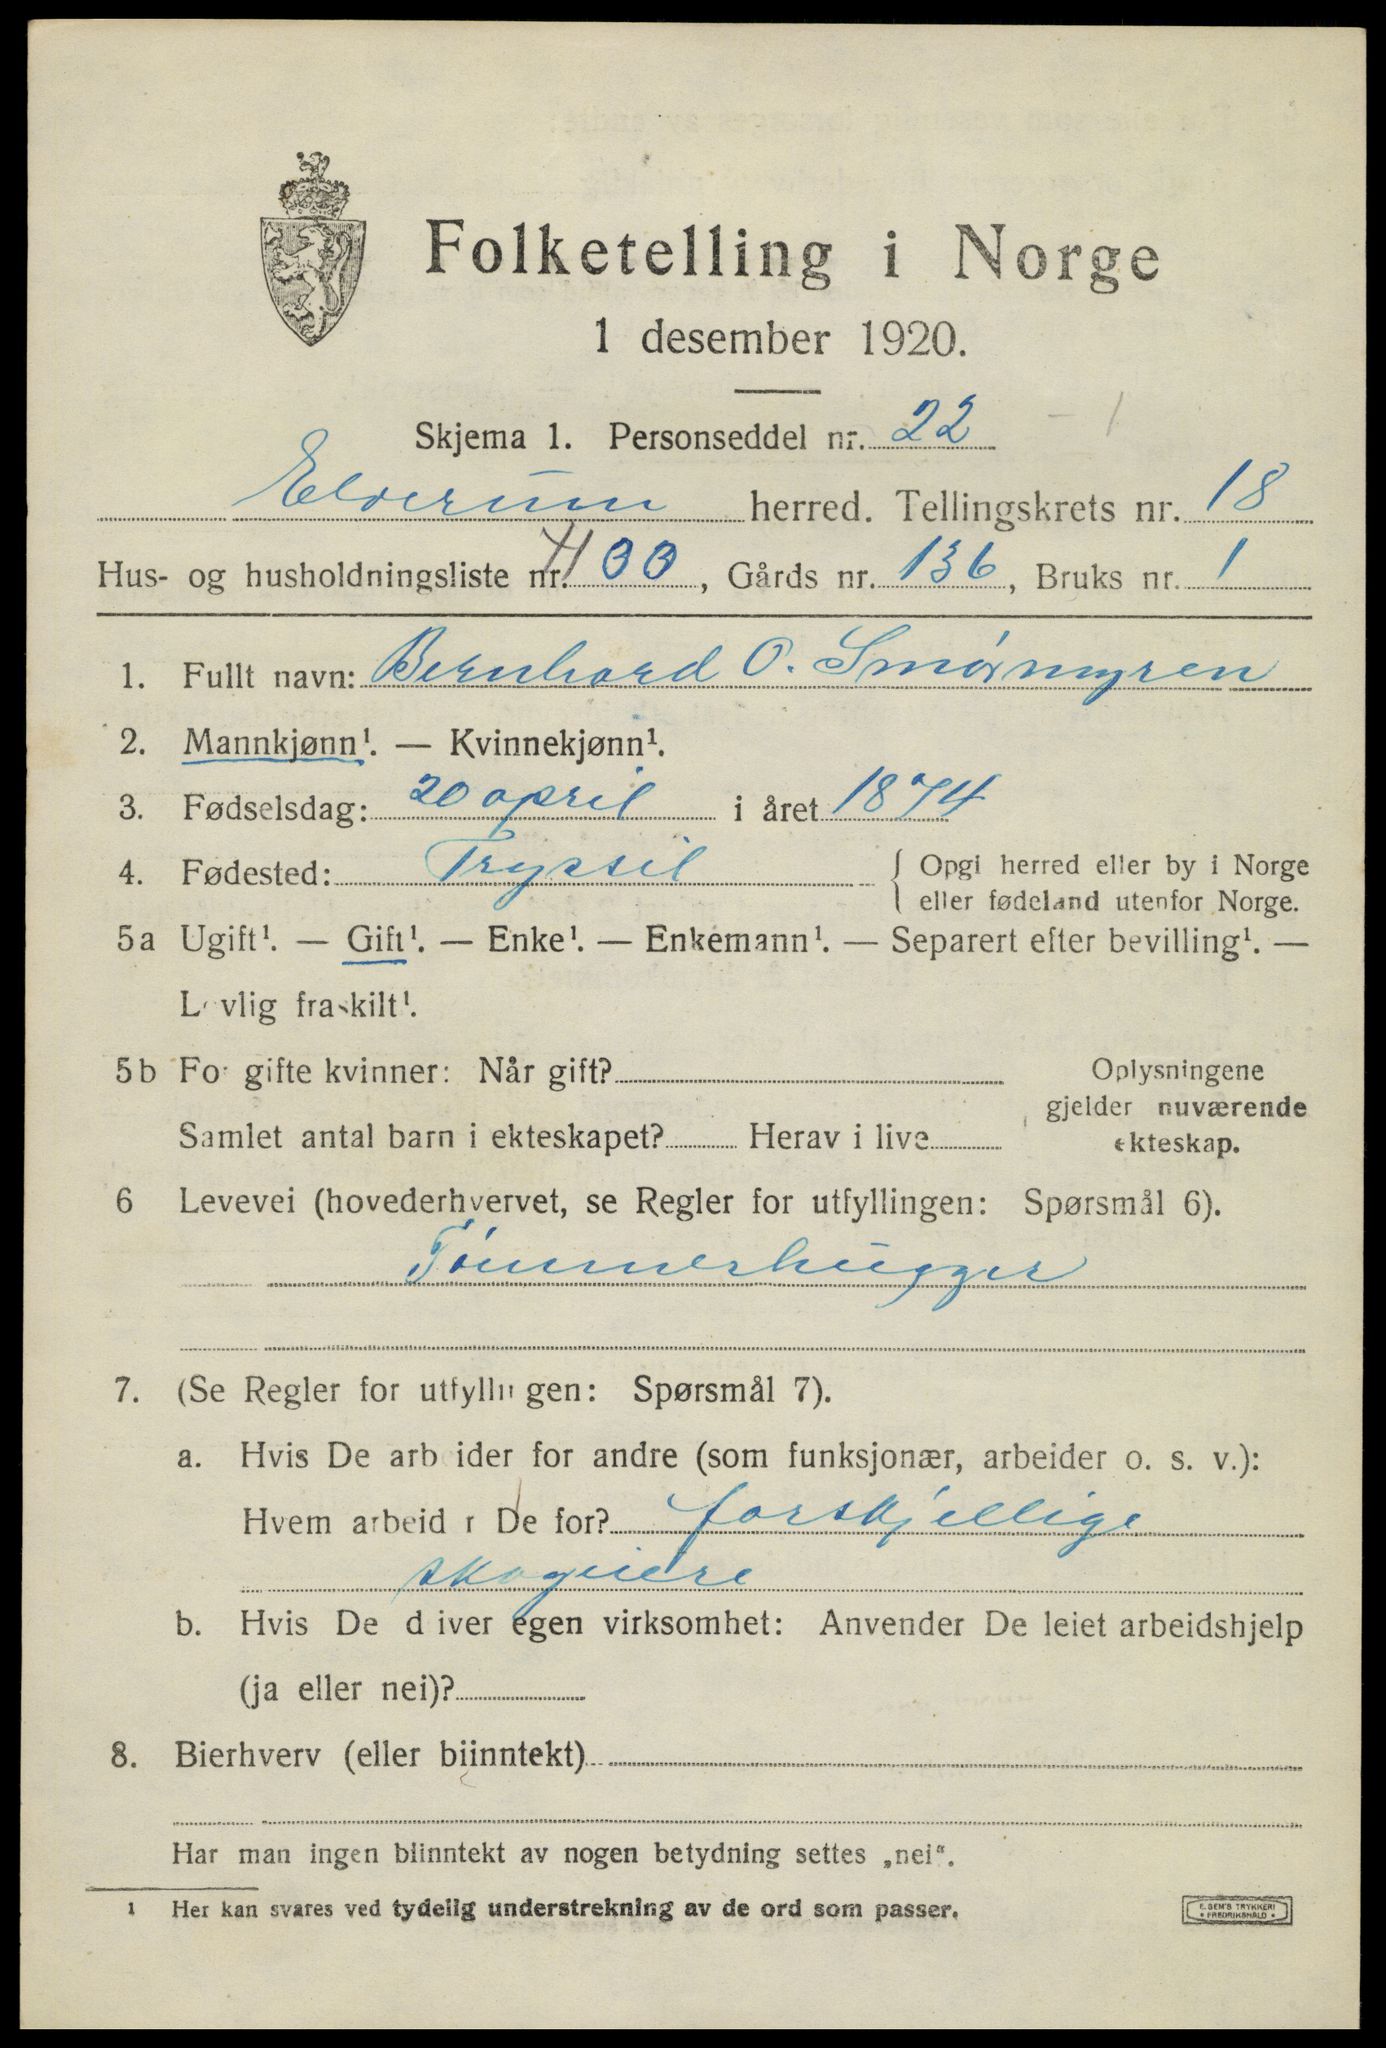 Folketelling i Norge
1 desember 1920.
Skjema 1. Personseddel nr. 22
Elverum herred. Tellingskrets nr. 18
Hus- og husholdningsliste nr. , Gårds nr. 136, Bruks nr. 1
1. Fullt navn: Bernhard O. Smörmyren
2. Mannkjønn¹. — Kvinnekjønn¹.
3. Fødselsdag: 20 april i året 1874
4. Fødested: Trysil { Opgi herred eller by i Norge
eller fødeland utenfor Norge.
5a Ugift¹. — Gift¹. — Enke¹. — Enkemann¹. — Separert efter bevilling¹. —
Lovlig fraskilt¹.
5b For gifte kvinner: Når gift? Oplysningene
gjelder nuværende
Samlet antal barn i ekteskapet? Herav i live ekteskap.
6 Levevei (hovederhvervet, se Regler for utfyllingen: Spørsmål 6).
Tömmerhugger
7. (Se Regler for utfyllingen: Spørsmål 7).
a. Hvis De arbeider for andre (som funksjonær, arbeider o. s. v.):
Hvem arbeider De for? forskjellige
skogeiere
b. Hvis De driver egen virksomhet: Anvender De leiet arbeidshjelp
(ja eller nei)?
8. Bierhverv (eller biinntekt)
Har man ingen biinntekt av nogen betydning settes „nei“.
1 Her kan svares ved tydelig understrekning av de ord som passer.
E. SEM'S TRYKKERI
• FREDRIKSHALD •